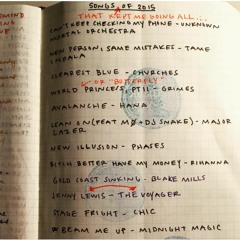 SONGS OF 2015
THAT KEPT ME GOING ALL...
CAN'T KEEP CHECKING MY PHONE - UNKNOWN
MORTAL ORCHESTRA
NEW PERSON, SAME MISTAKES - TAME
IMPALA
CLEAREST BLUE - CHVRCHES
OR "BUTTERFLY"
WORLD PRINCESS, PT II - GRIMES
AVALANCHE - HANA
LEAN ON (FEAT MØ + DJ SNAKE) - MAJOR
LAZER
NEW ILLUSION - PHASES
BITCH BETTER HAVE MY MONEY - RIHANNA
GOLD COAST SINKING - BLAKE MILLS
JENNY LEWIS - THE VOYAGER
STAGE FRIGHT - CHIC
BEAM ME UP - MIDNIGHT MAGIC